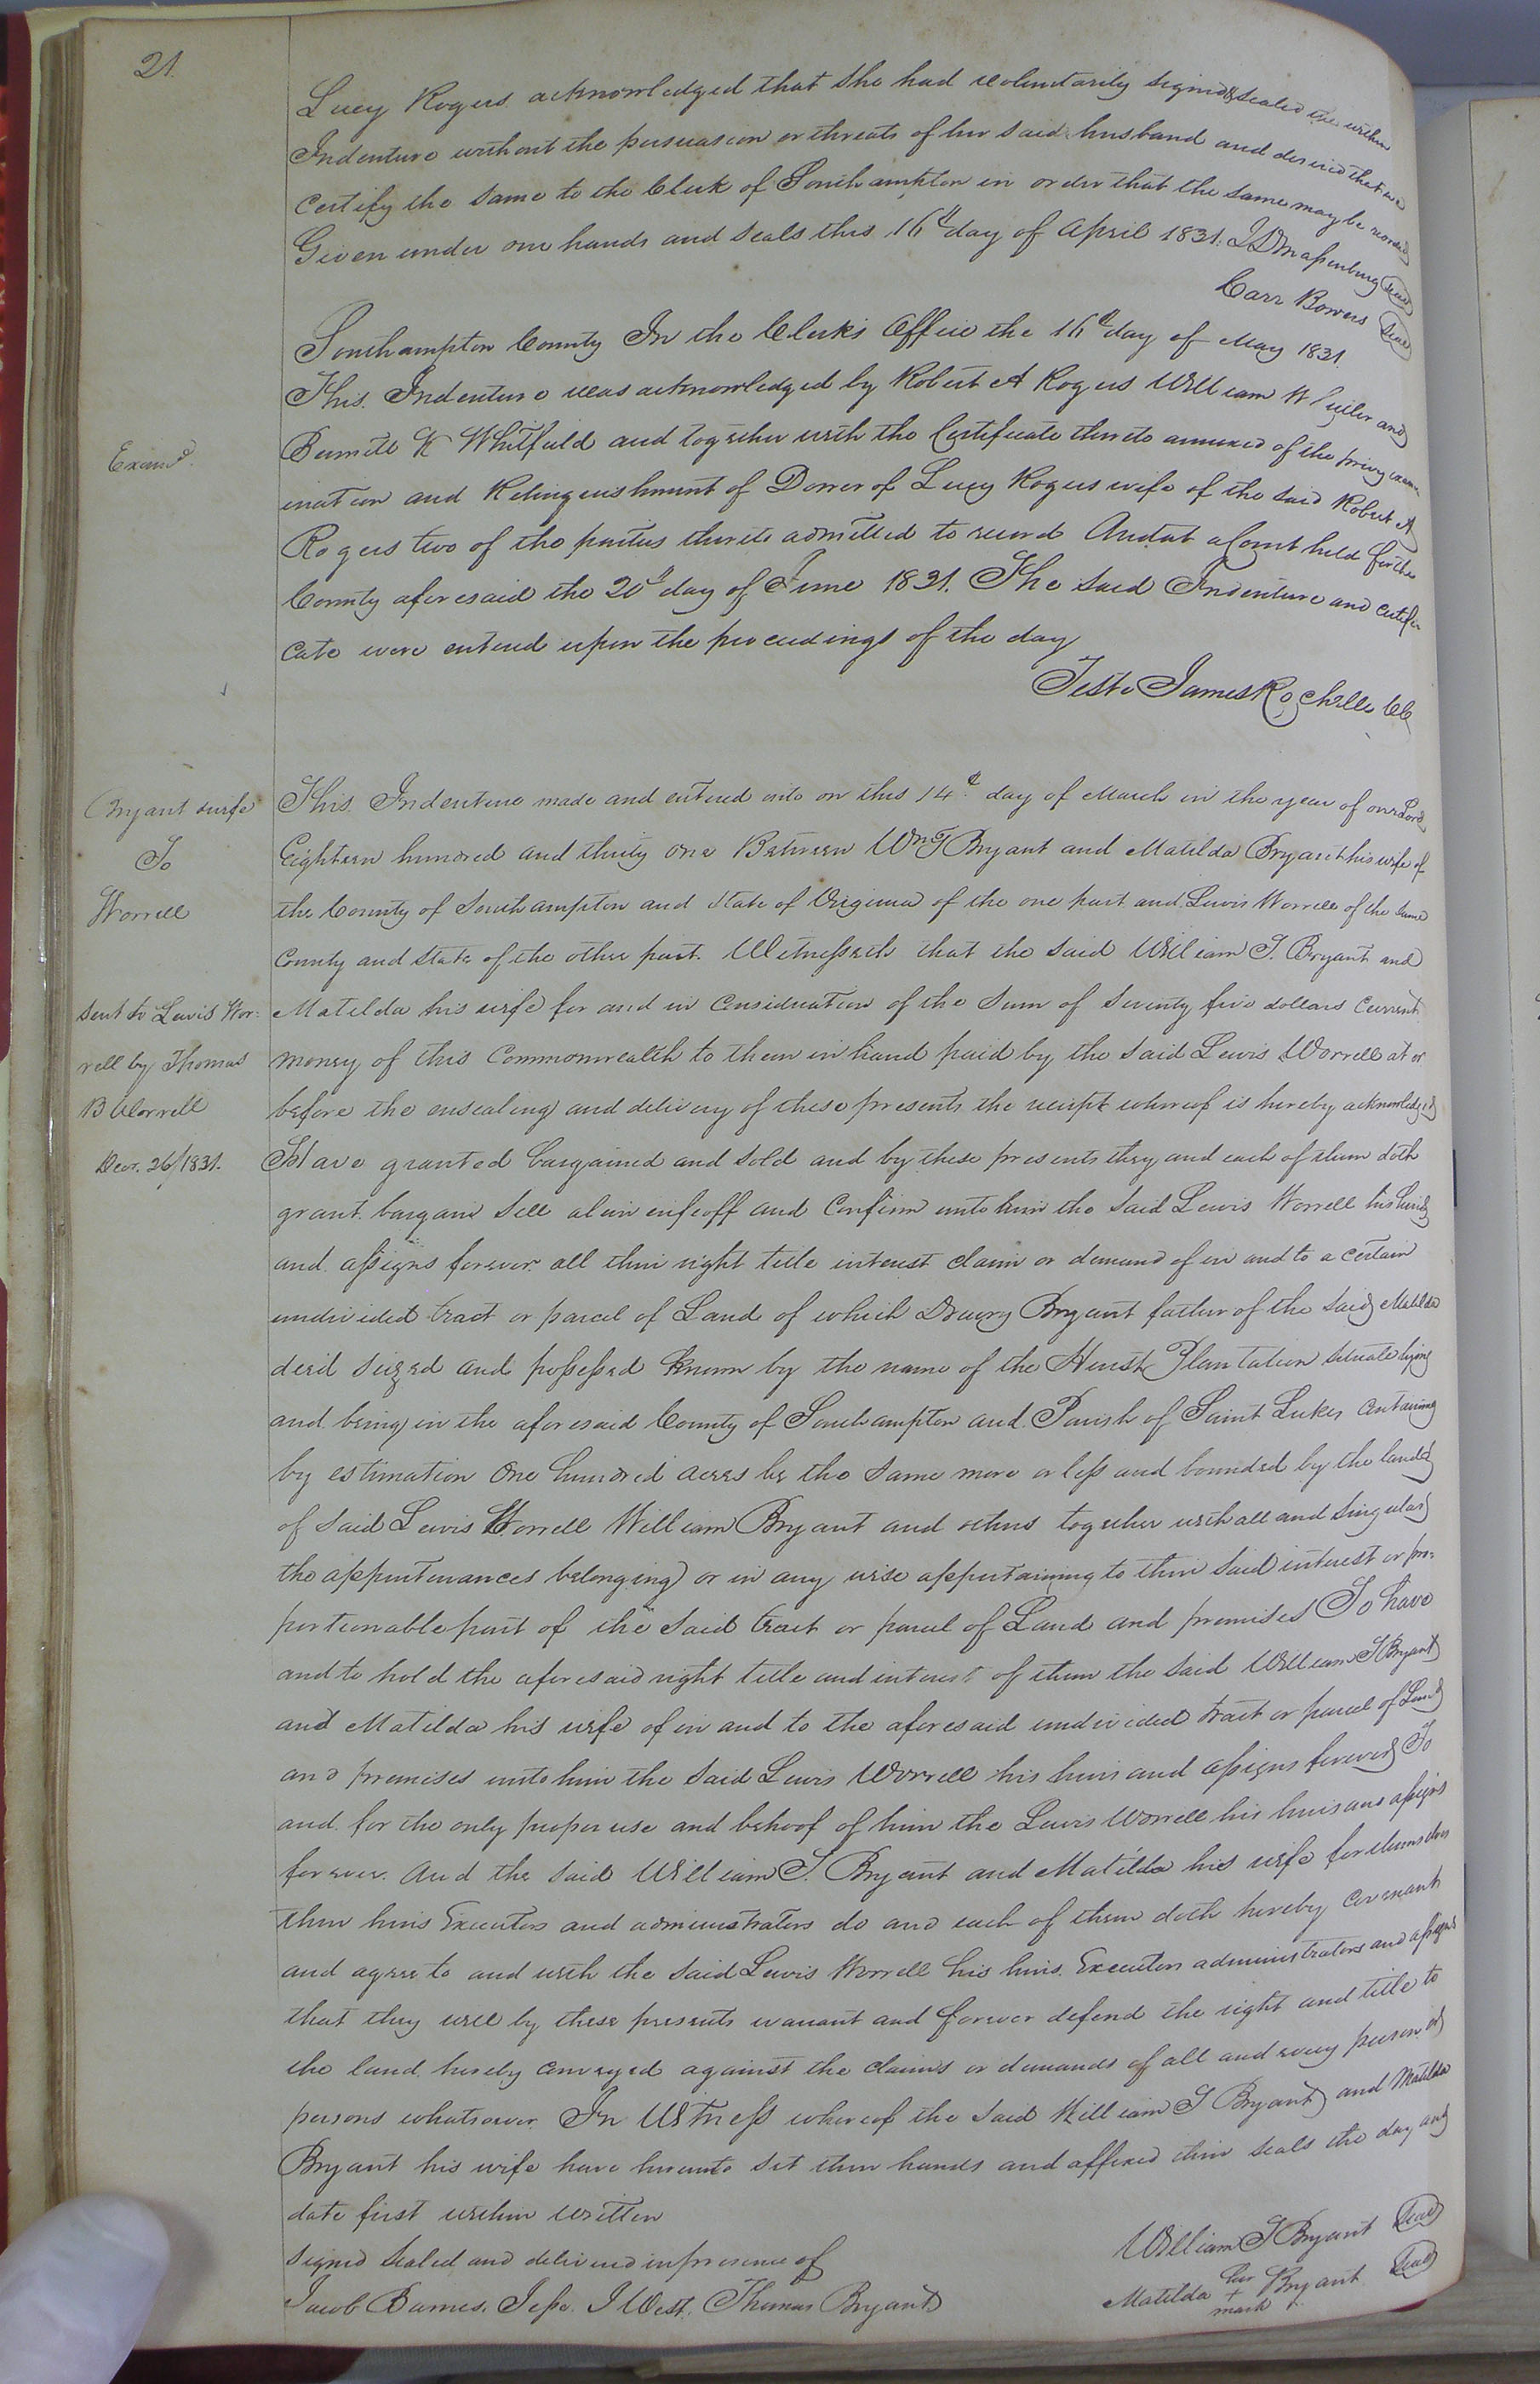 21.
Lucy Rogers acknowledged that she had voluntarily signed & sealed the within
Indenture without the persuasion or threats of her said husband and desired that we
certify the same to the Clerk of Southampton in order that the same may be recorded
Given under our hands and seals this 16th day of April 1831. Massenburg Seal
Carr Bowers Seal
Southampton County In the Clerk's Office the 16th day of May 1831.
This Indenture was acknowledged by Robert A Rogers William W and
Exam'd.
Whitfield and together with the Certificate thereto annexed of the privy exam
ination and Relinquishment of Dower of Lucy Rogers wife of the said Robert A
Rogers two of the parties thereto admitted to record And at a Court held for the
County aforesaid the 20th day of June 1831. The said Indenture and certifi
cate were entered upon the proceedings of the day
Teste James Rochelle CC
Bryant & wife
To
Worrell
sent to Lewis Wor:
rell by Thomas
B Worrell
Decr. 26/1831.
This Indenture made and entered into on this 14th day of March in the year of our Lord
Eighteen hundred and thirty one Between Wm T Bryant and Matilda Bryant his wife of
the County of Southampton and State of Virginia of the one part and Lewis Worrell of the same
County and State of the other part. Witnesseth that the said William T. Bryant and
Matilda his wife for and in Consideration of the Sum of Seventy five dollars Current
money of this Commonwealth to them in hand paid by the said Lewis Worrell at or
before the ensealing and delivery of these presents the receipt whereof is hereby acknowledged
Have granted bargained and sold and by these presents they and each of them doth
grant bargain sell alien enfeoff and Confirm unto him the said Lewis Worrell his heirs
and assigns forever all their right title interest claim or demand of in and to a certain
undivided tract or parcel of Land of which Drewry Bryant father of the said Matilda
died seized and possessed known by the name of the Plantation situate lying
and being in the aforesaid County of Southampton and Parish of Saint Lukes Containing
by estimation One hundred acres be the same more or less and bounded by the lands
of said Lewis Worrell William Bryant and others together with all and singular
the appurtenances belonging or in any wise appertaining to their said interest or pro:
portionable part of the said tract or parcel of Land and premises To have
and to hold the aforesaid right title and interest of them the said William T Bryant
and Matilda his wife of in and to the aforesaid undivided tract or parcel of Land
and premises unto him the said Lewis Worrell his heirs and assigns forever To
and for the only proper use and behoof of him the Lewis Worrell his heirs and assigns
forever. And the said William T. Bryant and Matilda his wife for themselves
their heirs Executors and administrators do and each of them doth hereby covenant
and agree to and with the said Lewis Worrell his heirs. Executors administrators and assigns
that they will by these presents warrant and forever defend the right and title to
the land hereby conveyed against the claims or demands of all and every person or
persons whatsoever In Witness whereof the said William T Bryant and Matilda
Bryant his wife have hereunto set their hands and affixed their seals the day and
date first within written
signed sealed and delivered in presence of
William T Bryant Seal
Jacob Barnes. J West. Thomas Bryant
Matilda her + mark Bryant Seal